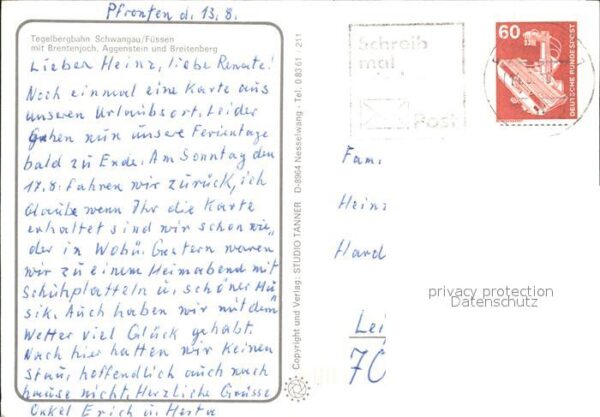 Pfronten d. 13.8.
Tegelbergbahn Schwangau/Füssen
mit Brentenjoch, Aggenstein und Breitenberg
Lieber Heinz, liebe Renate!
Noch einmal eine Karte aus
unseren Urlaubsort. Leider
gehen nun unsere Ferientage
bald zu Ende. Am Sonntag den
17.8. fahren wir zurück, ich
glaube wenn Ihr die Karte
erhaltet sind wir schon wie,
der in Wobü. Gestern waren
wir zu einem Heimabend mit
Schuhplatteln u. schöner Mu
sik. Auch haben wir mit dem
Wetter viel Glück gehabt.
Nach hier hatten wir keinen
Stau, hoffendlich auch nach
hause nicht. Herzliche Grüsse
Onkel Erich u. Herta
Copyright und Verlag: STUDIO TANNER D-8964 Nesselwang · Tel. 0 83 61 / 211
Schreib
mal
Post
60
DEUTSCHE BUNDESPOST
Fam.
Heinz
Hard
Lei
70
privacy protection
Datenschutz